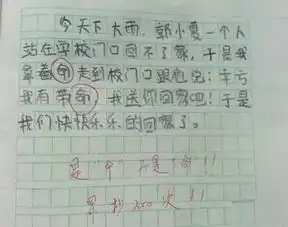 今天下大雨，郭小夏一个人
站在学校门口回不了家，于是我
拿着命走到校门口跟他说：幸亏
我有带命，我送你回家吧！于是
我们快快乐乐的回家了。
是"伞"不是"命"！！
罚抄200次！！